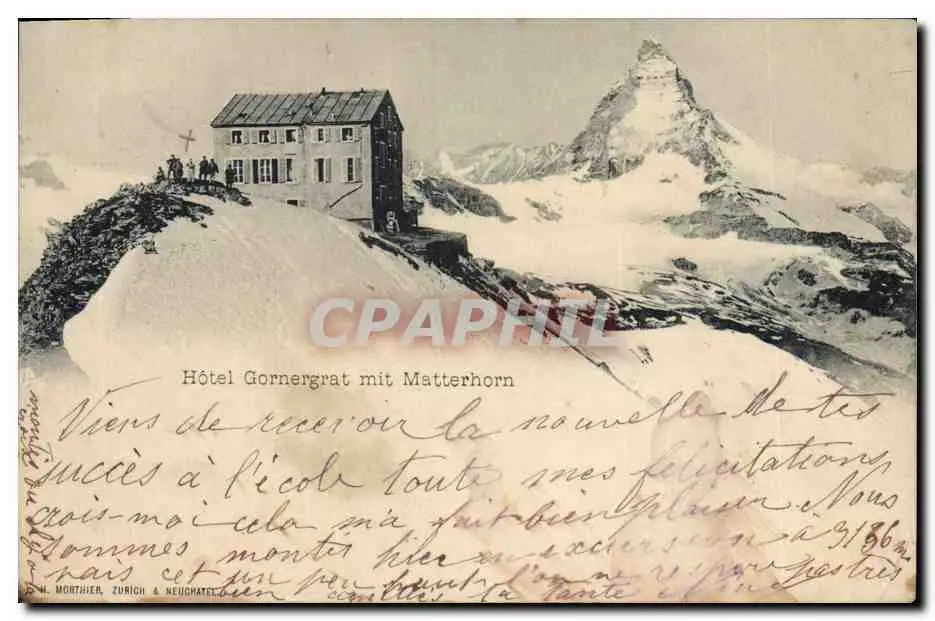 CPAPHIL
Hôtel Gornergrat mit Matterhorn
Viens de recevoir la nouvelle de tes
succès à l'école toute mes félicitations
crois-moi cela m'a fait bien plaisir Nous
sommes montés hier en excursion à 3136 m
mais cet un peu haut l'on ne respire pas très
bien la tante
H. MORTHIER, ZURICH & NEUCHATEL